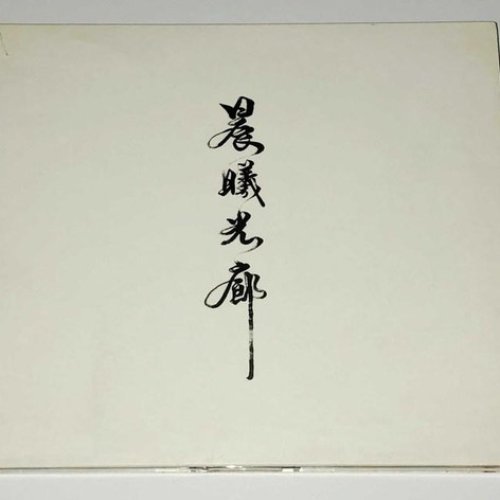 晨曦光廊